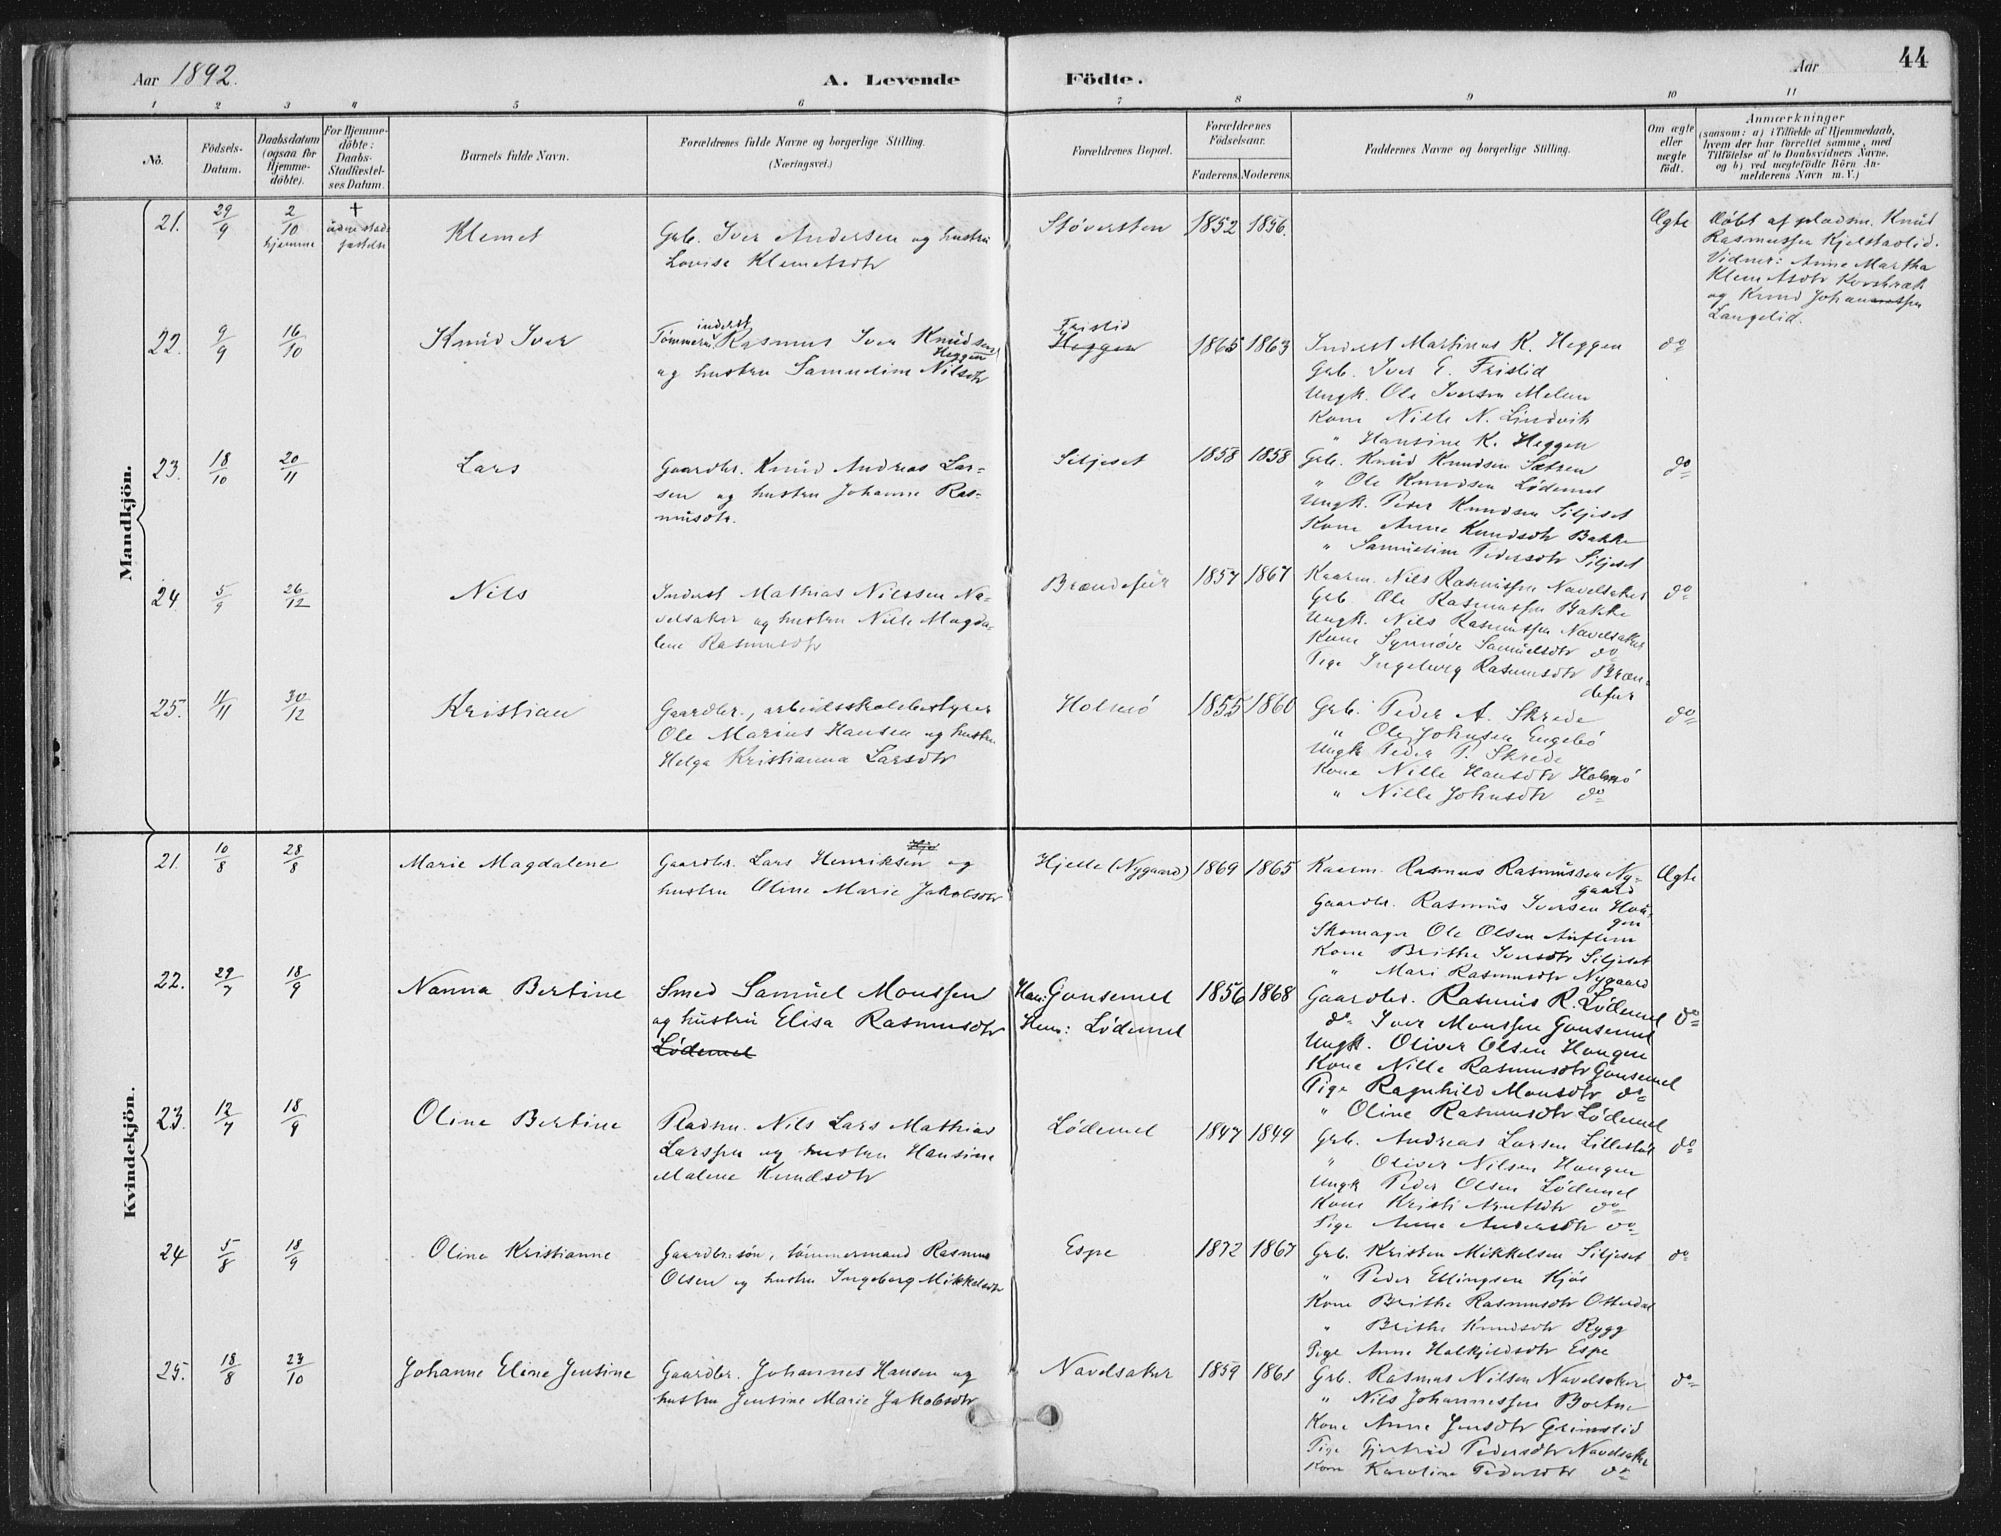 Aar 1892.
A. Levende Födte.
Aar
44
1 2 3 4 5 6 7 8 9 10 11
No.
Födsels-
Datum.
Daabsdatum
(ogsaa for
Hjemme-
döbte).
For Hjemme-
döbte:
Daabs-
Stadfæstel-
ses Datum.
Barnets fulde Navn.
Forældrenes fulde Navne og borgerlige Stilling.
(Næringsvei.)
Forældrenes Bopæl.
Forældrenes
Födselsaar.
Faderens. Moderens.
Faddernes Navne og borgerlige Stilling.
Om ægte
eller
uægte
födt.
Anmærkninger
(saasom: a) i Tilfælde af Hjemmedaab,
hvem der har forrettet samme, med
Tilföielse af to Daabsvidners Navne.
og b) ved uægtefödte Börn An-
melderens Navn m. V.)
Mandkjön.
21. 29/9 2/10 hjemme
†
uden stad-
fæstelse
Klemet
Grb. Iver Andersen og hustru
Lovise Klemetsdtr
Støversten 1852 1856.
Ægte
Døbt af pladsm. Knud
Rasmussen Kjelstadlid.
Vidner: Anne Martha
Klemetsdtr
og Knud Johannessen
Langelid.
22. 9/9 16/10 Knud Iver
inderst
Tømmerm. Rasmus Iver Knudsen
Heggen
og hustru Samudine Nilsdtr
Fristid
Heggen
1865 1863
Inderst Martinus K. Heggen
Grb. Iver E. Fristid
Ungk. Ole Iversen Melem
Kone Nille N. Lindvik
" Hansine K. Heggen
do
23. 18/10 20/11 Lars
Gaardbr. Knud Andreas Lar-
sen og hustru Johanne Ras-
musdtr.
Siljeset 1858 1858
Grb. Knud Knudsen Sætren
" Ole Knudsen Lødemel
Ungk. Peder Knudsen Siljeset
Kone Anne Knudsdtr Bakke
" Samueline Pedersdtr Siljeset
do
24 5/9 26/12 Nils
Inderst Mathias Nilssen Na-
velsaker og hustru Nille Magda-
lene Rasmusdtr
Brændefur 1857 1867
Kaarm. Nils Rasmussen Navelsaker
Grb. Ole Rasmussen Bakke
Ungk. Nils Rasmussen Navelsaker
Kone Synnøve Samuelsdtr do
Pige Ingeborg Rasmusdtr Bræn-
defur
do
25. 11/11 30/12 Kristian
Gaardbr., arbeidsskolebestyrer
Ole Marius Hansen og hustru
Helga Kristianna Larsdtr
Holmø 1855 1860
Grb. Peder A. Skrede
" Ole Johnsen Engebø
Ungk Peder P. Skrede
Kone Nille Hansdtr Holmø
" Nille Johnsdtr do
do
Kvindekjön.
21. 10/8 28/8 Marie Magdalene
Gaardbr. Lars Henriksen og
hustru Oline Marie Jakobsdtr
Hjelle (Nygaard) 1869 1865
Kaarm. Rasmus Rasmussen Ny-
gaard
Gaardbr. Rasmus Iversen Hau-
gen
Skomager Ole Olsen Auflem
Kone Brithe Iversdtr Siljeset
" Mari Rasmusdtr Nygaard
Ægte
22. 29/7 18/9 Nanna Bertine
Smed Samuel Monssen
og hustru Elisa Rasmusdtr
Lødemel
Han: Gausemel
Hun: Lødemel
1856 1868
Gaardbr. Rasmus R. Lødemel
do Iver Monssen Gausemel
Ungk. Oliver Olsen Haugen
Kone Nille Rasmusdtr Gausemel
Pige Ragnhild Monsdtr do
" Oline Rasmusdtr Lødemel
do
23. 12/7 18/9 Oline Bertine
Pladsm. Nils Lars Mathias
Larssen og hustru Hansine
Malene Knudsdtr
Lødemel 1847 1849
Grb. Andreas Larsen Lillestøl
" Oliver Nilsen Haugen
Ungk Peder Olsen Lødemel
Kone Kristi do
Pige Anne Andersdtr do
do
24 5/8 18/9 Oline Kristianne
Gaardbr.søn, tømmermand Rasmus
Olsen og hustru Ingeborg Mikkelsdtr
Espe 1872 1867
Grb. Kristen Mikkelsen Siljeset
" Peder Ellingsen Kjøs
Kone Brithe Rasmusdtr Otterdal
" Brithe Knudsdtr Rygg
Pige Anne Halkjeldsdtr Espe
do
25. 18/8 23/10 Johanne Eline Jensine
Gaardbr. Johannes Hansen og
hustru Jensine Marie Jakobsdtr
Navelsaker 1859 1861
Grb. Rasmus Nilsen Navelsaker
" Nils Johannessen Bortne
Kone Anne Jensdtr Grimstid
Pige Gjertrud Pedersdtr Navelsaker
Kone Karoline Pedersdtr do
do